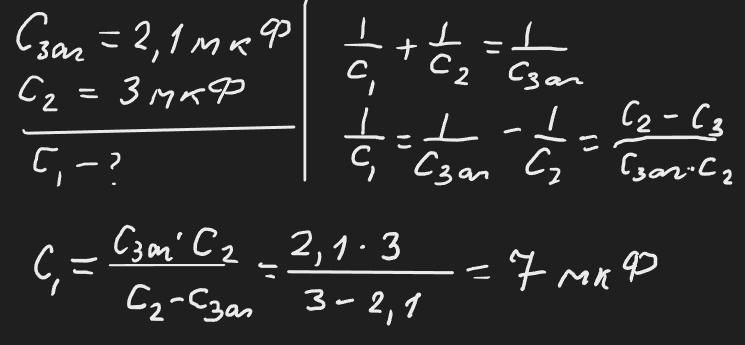 Cзаг = 2,1 мкФ
C₂ = 3 мкФ
C₁ – ?
1/C₁ + 1/C₂ = 1/Cзаг
1/C₁ = 1/Cзаг – 1/C₂ = (C₂ – C₃)/(Cзаг · C₂)
C₁ = (Cзаг · C₂)/(C₂ – Cзаг) = (2,1 · 3)/(3 – 2,1) = 7 мкФ